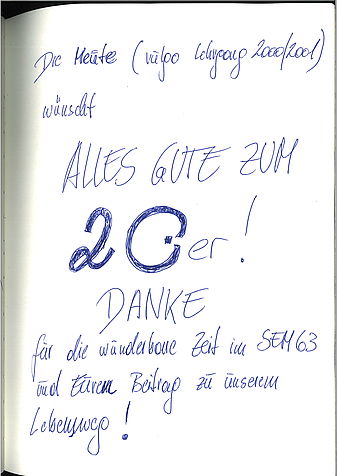 Die Meute (vulgo Lehrgang 2000/2001)
wünscht
ALLES GUTE ZUM
20er!
DANKE
für die wunderbare Zeit im SEM63
und Euren Beitrag zu unserem
Lebensweg!